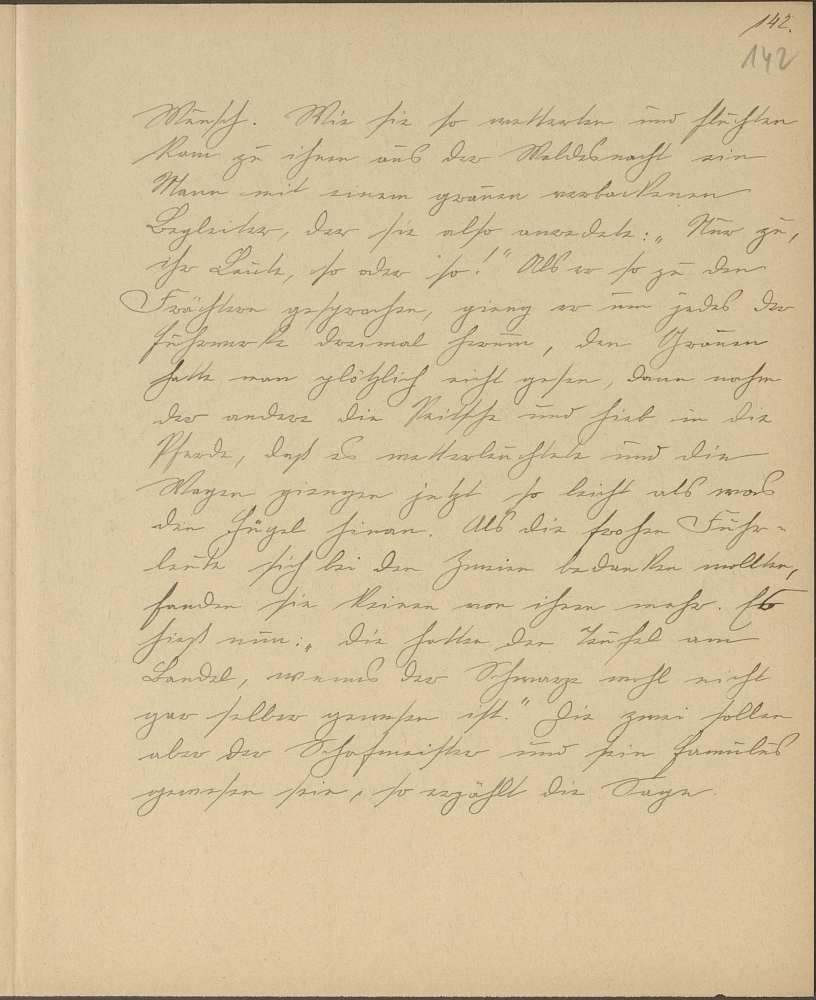 142.
142
Wunsch. Wie sie so wetterten und fluchten
kam zu ihnen aus der Waldesnacht ein
Mann mit einem grauen verbackenen
Begleiter, der sie also anredete: „Nur zu,
ihr Leute, so oder so!" Als er so zu den
Frächtern gesprochen, gieng er um jedes der
Fuhrwerke dreimal herum, den Grauen
hatte man plötzlich nicht gesen, dann nahm
der andere die Peitsche und hieb in die
Pferde, daß es wetterleuchtete und die
Wagen giengen jetzt so leicht als was
den Hügel hinan. Als die frohen Fuhr-
leute sich bei den Zweien bedanken wollten,
fanden sie keinen von ihnen mehr. Es
hieß nun: „die hatten den Teufel am
Bandel, wenns der Schwarze wohl nicht
gar selber gewesen ist." Die zwei sollen
aber der Schafmeister und sein Famulus
gewesen sein, so erzählt die Sage.